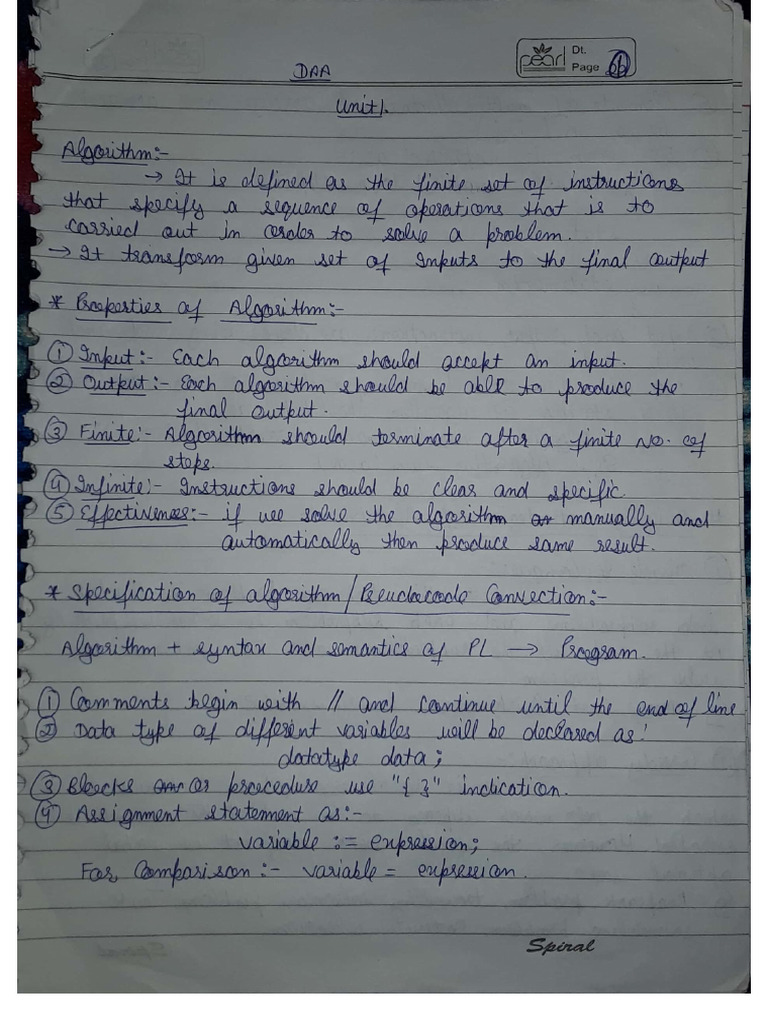 pearl
Dt.
Page
DAA
Unit 1.
Algorithm:-
→ It is defined as the finite set of instructions
that specify a sequence of operations that is to
carried out in order to solve a problem.
→ It transform given set of Inputs to the final output
* Properties of Algorithm:-
① Input:- Each algorithm should accept an input.
② Output:- Each algorithm should be able to produce the
final output.
③ Finite:- Algorithm should terminate after a finite No. of
steps.
④ Infinite:- Instructions should be clear and specific.
⑤ Effectiveness:- if we solve the algorithm or manually and
automatically then produce same result.
* Specification of algorithm/Pseudocode Convection:-
Algorithm + syntax and semantics of PL → Program.
① Comments begin with // and continue until the end of line
② Data type of different variables will be declared as:
datatype data;
③ Blocks or procedure use "{ }" indication.
④ Assignment statement as:-
variable := expression;
For Comparison:- variable = expression.
Spiral